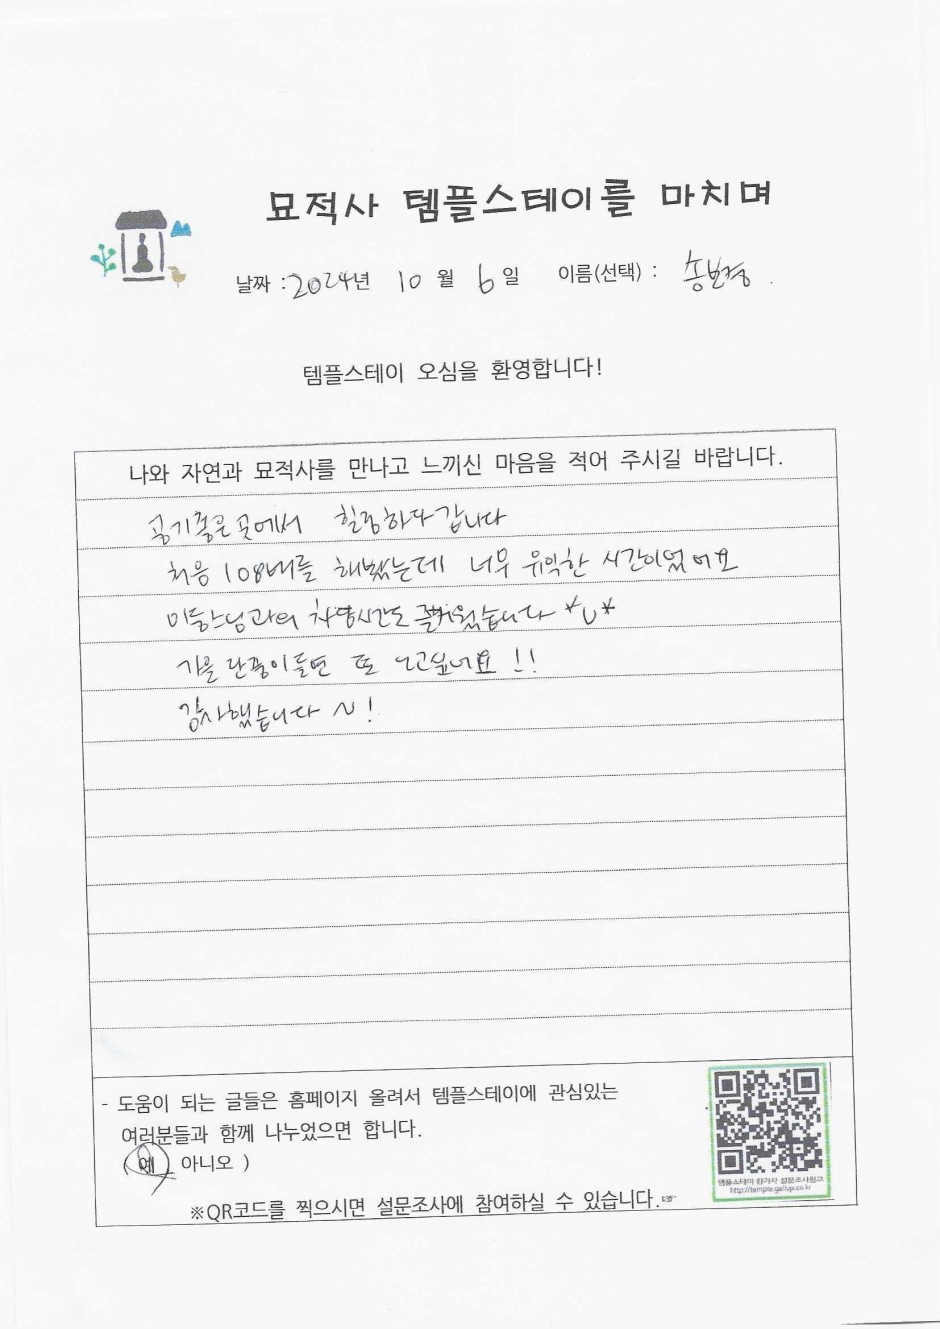 묘적사 템플스테이를 마치며
날짜 : 2024년 10 월 6 일 이름(선택) : 송보경
템플스테이 오심을 환영합니다!
나와 자연과 묘적사를 만나고 느끼신 마음을 적어 주시길 바랍니다.
공기좋은곳에서 힐링하다갑니다
처음 108배를 해봤는데 너무 유익한 시간이었어요
미등스님과의 차담시간도 즐거웠습니다 *U*
가을 단풍이들면 또 오고싶네요 !!
감사했습니다 ~!
- 도움이 되는 글들은 홈페이지 올려서 템플스테이에 관심있는
여러분들과 함께 나누었으면 합니다.
( 예 아니오 )
템플스테이 참가자 설문조사링크
http://temple.gallup.co.kr
※QR코드를 찍으시면 설문조사에 참여하실 수 있습니다.☞